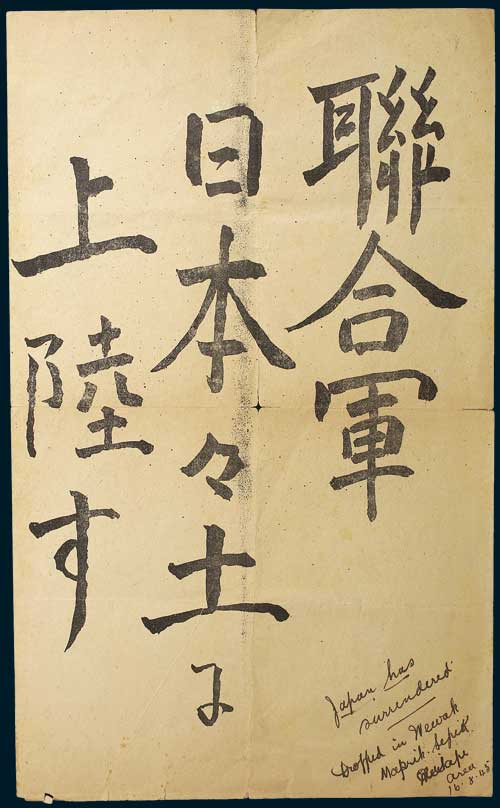 聯合軍
日本々土に
上陸す
Japan has
surrendered
Dropped in Wewak
Maprik. Sepik
area
16.8.45